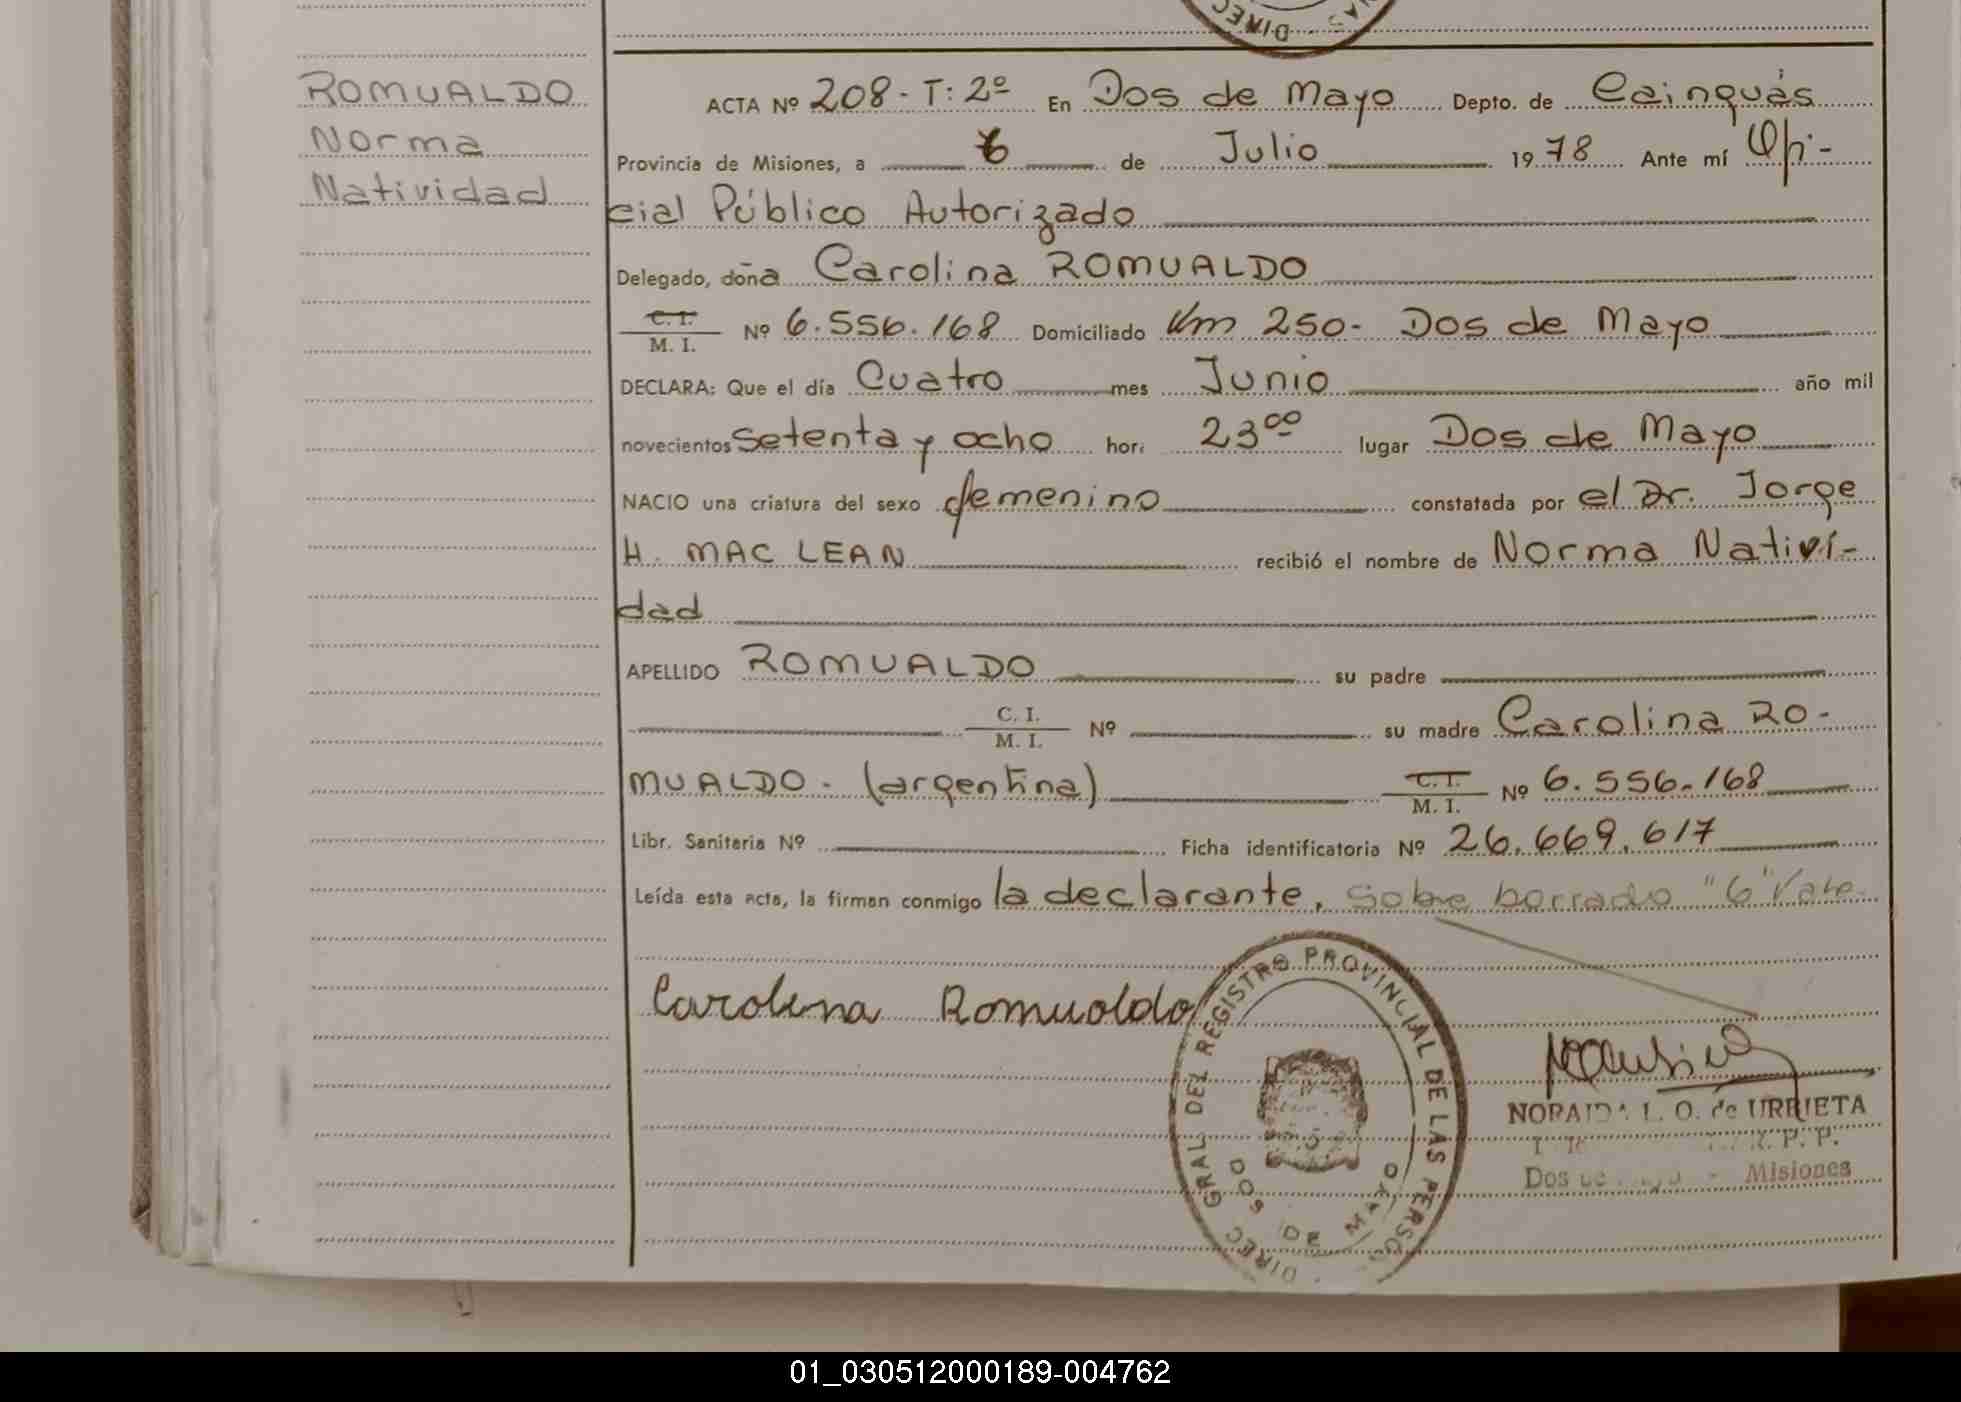 DIREC
NAS
ROMUALDO
Norma
Natividad
ACTA Nº 208 - T: 2º En Dos de Mayo Depto. de Cainguás
Provincia de Misiones, a 6 de Julio 1978 Ante mí Ofi-
cial Público Autorizado
Delegado, doña Carolina ROMUALDO
C. I. / M. I. Nº 6.556.168 Domiciliado Km 250 - Dos de Mayo
DECLARA: Que el día Cuatro mes Junio año mil
novecientos setenta y ocho hor: 23 00 lugar Dos de Mayo
NACIO una criatura del sexo femenino constatada por el Dr. Jorge
H. MAC LEAN recibió el nombre de Norma Nativi-
dad
APELLIDO ROMUALDO su padre
C. I. / M. I. Nº su madre Carolina RO-
MUALDO - (argentina) C. I. / M. I. Nº 6.556.168
Libr. Sanitaria Nº Ficha identificatoria Nº 26.669.617
Leída esta acta, la firman conmigo la declarante. Sobre borrado "6" Vale.
Carolina Romualdo
DIREC GRAL DEL REGISTRO PROVINCIAL DE LAS PERSO
DOS DE MAYO
NORAIDA L. O. de URRIETA
R. P. P.
Dos de Mayo - Misiones
01_030512000189-004762